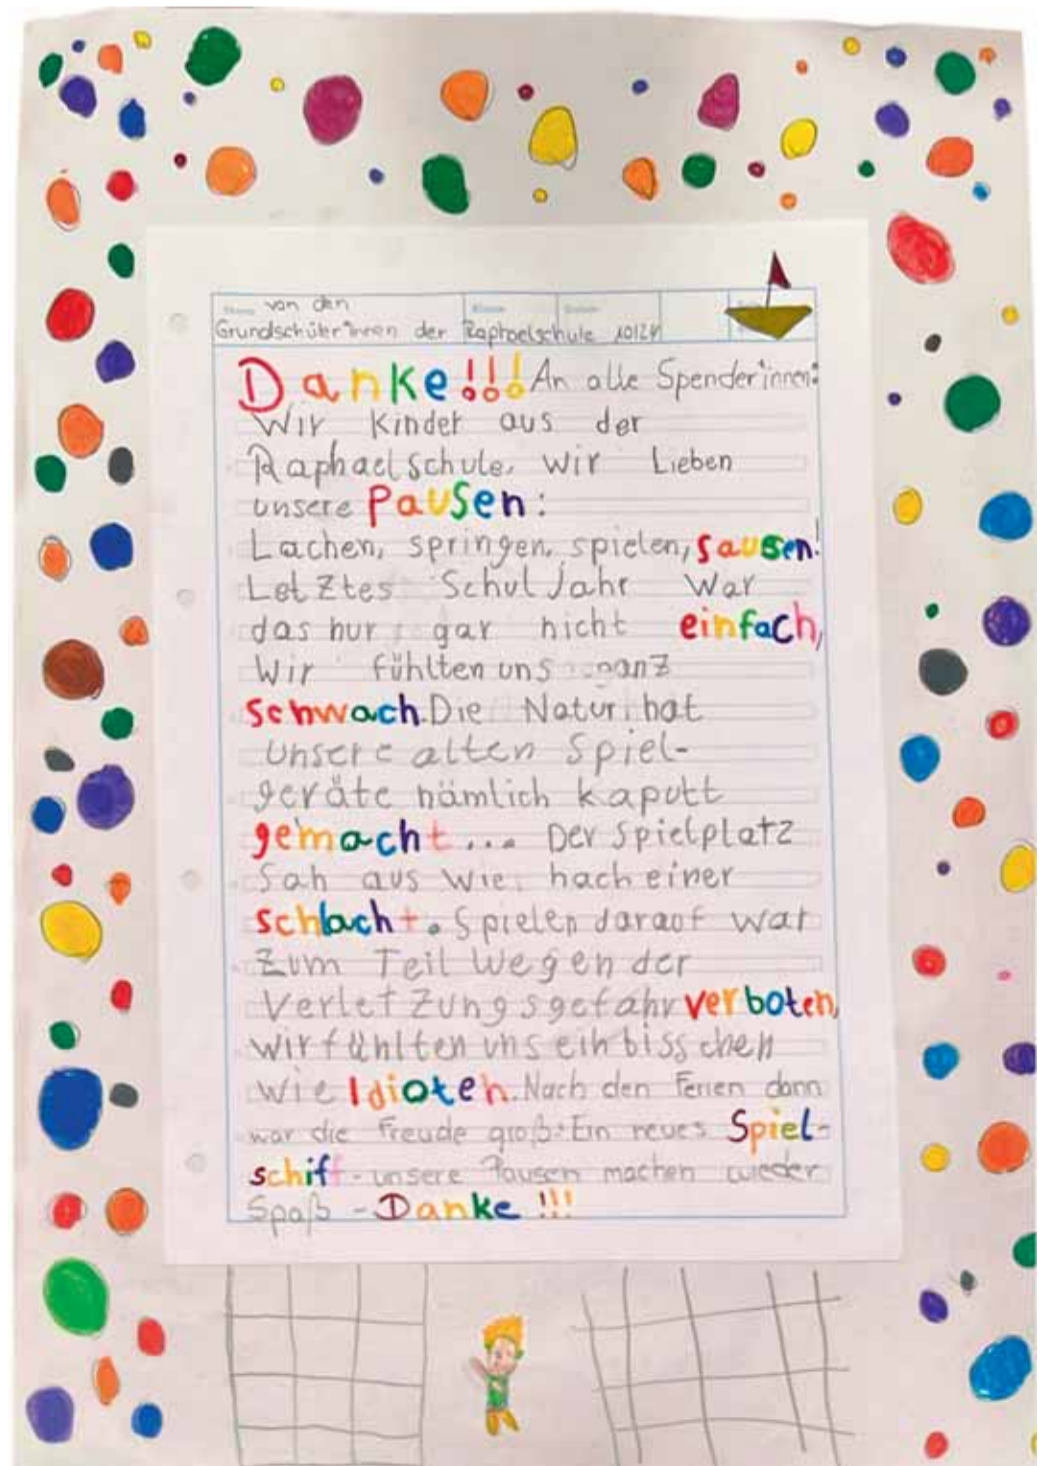 von den
Grundschüler*innen der Raphaelschule 10/24
Danke!!! An alle Spender*innen:
Wir Kinder aus der
Raphaelschule, wir Lieben
unsere Pausen:
Lachen, springen, spielen, sausen!
Letztes Schuljahr war
das nur gar nicht einfach,
Wir fühlten uns ganz
schwach. Die Natur hat
unsere alten Spiel-
geräte nämlich kaputt
gemacht... Der Spielplatz
Sah aus wie nach einer
schlacht. Spielen darauf war
zum Teil wegen der
Verletzungsgefahr verboten,
wir fühlten uns ein bisschen
wie Idioten. Nach den Ferien dann
war die Freude groß: Ein neues Spiel-
schiff - unsere Pausen machen wieder
Spaß - Danke!!!